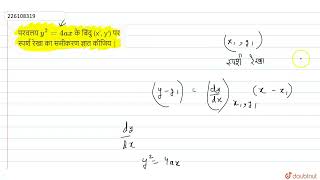 226108319
परवलय y² = 4ax के बिंदु (x', y') पर
स्पर्श रेखा का समीकरण ज्ञात कीजिय |
(x₁, y₁)
स्पर्श रेखा
(y-y₁) = (dy/dx) x₁, y₁ (x - x₁)
dy/dx
y² = 4ax
doubtnut